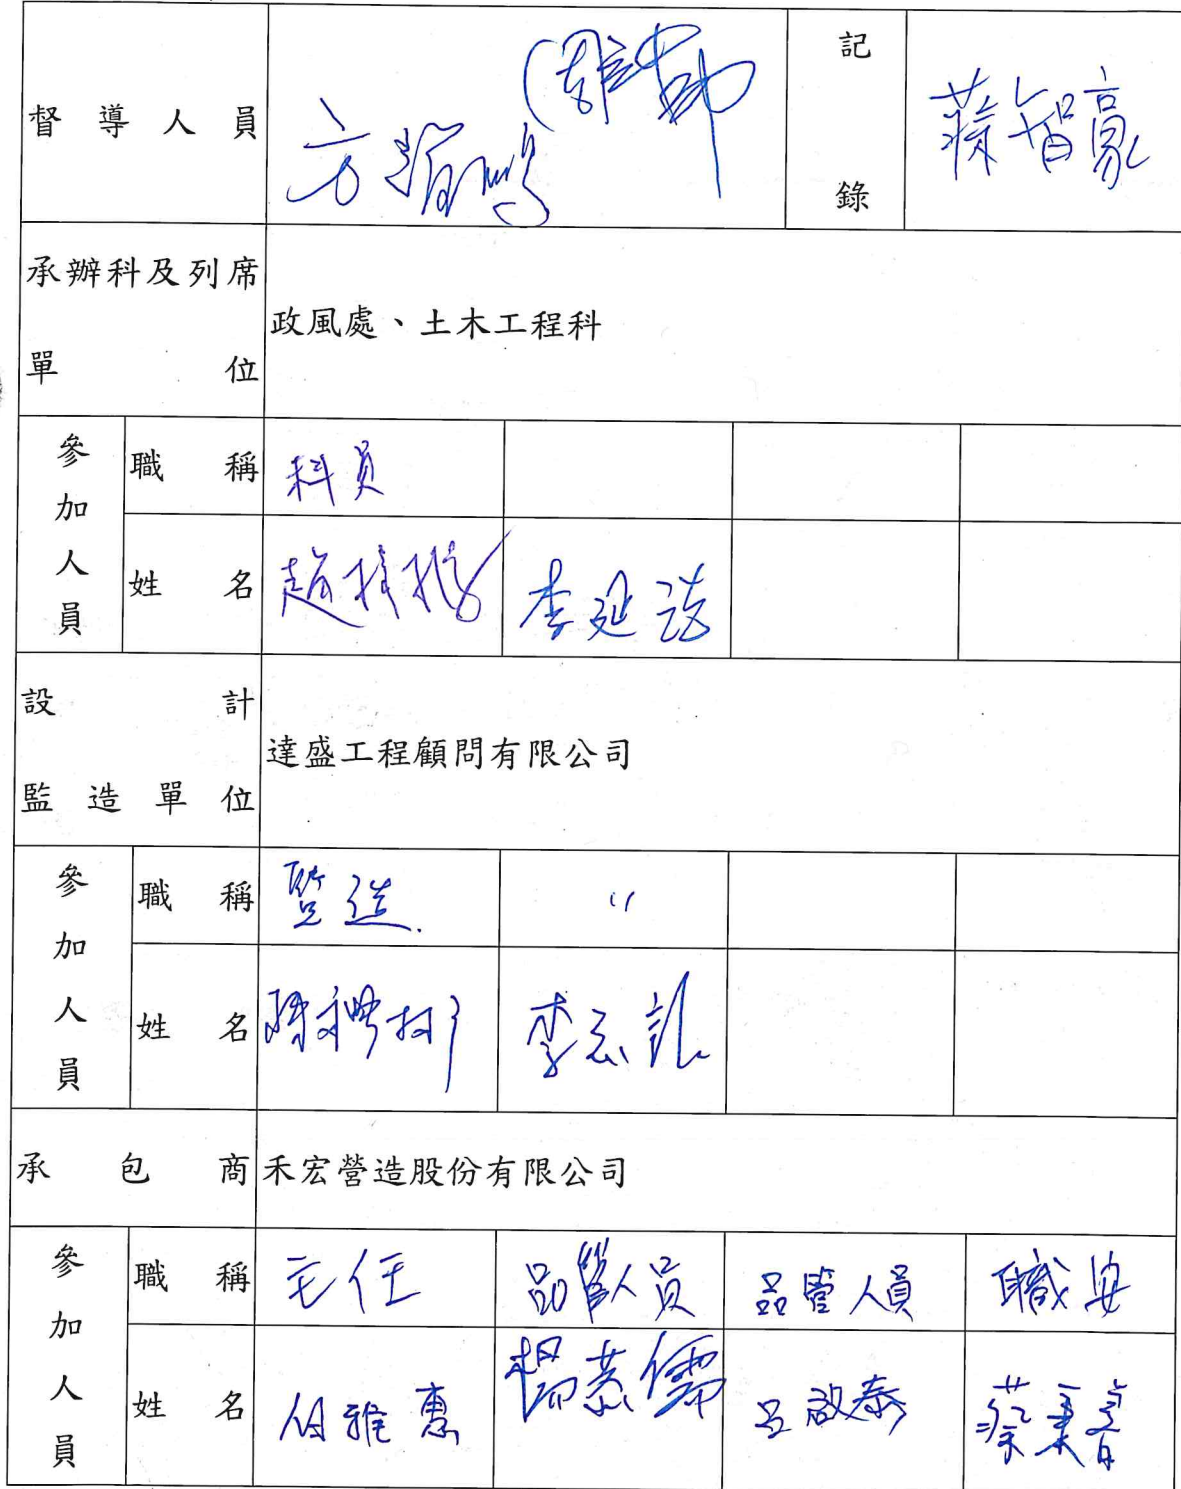 督導人員
記錄
蔡智豪
承辦科及列席單位
政風處、土木工程科
參加人員
職稱 科員
姓名 李延
設計監造單位
達盛工程顧問有限公司
參加人員
職稱 監造 〃
姓名 李
承包商 禾宏營造股份有限公司
參加人員
職稱 主任 品管人員 品管人員 職安
姓名 雅惠 楊 儒 呂啟泰 蔡秉